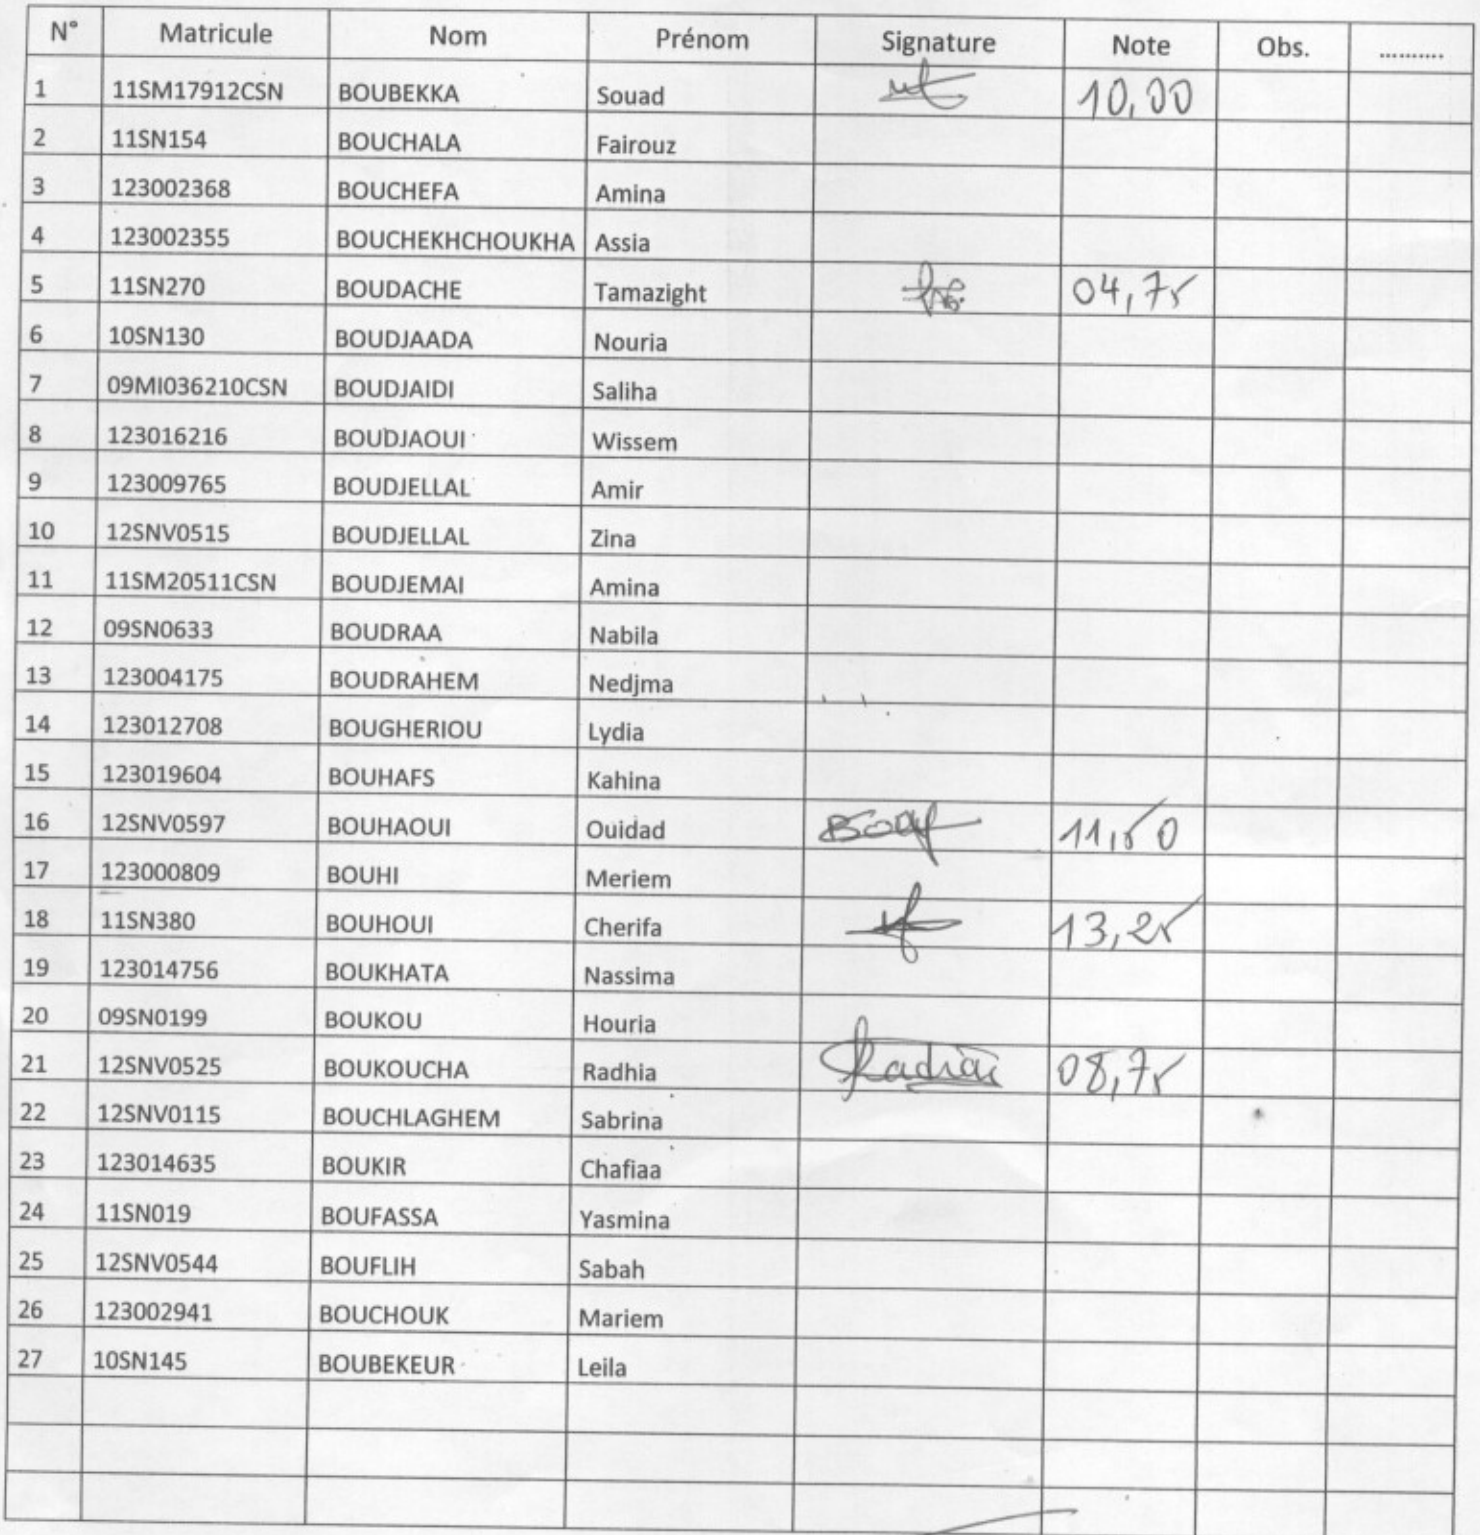 N° Matricule Nom Prénom Signature Note Obs. ..........
1 11SM17912CSN BOUBEKKA Souad 10,00
2 11SN154 BOUCHALA Fairouz
3 123002368 BOUCHEFA Amina
4 123002355 BOUCHEKHCHOUKHA Assia
5 11SN270 BOUDACHE Tamazight 04,75
6 10SN130 BOUDJAADA Nouria
7 09MI036210CSN BOUDJAIDI Saliha
8 123016216 BOUDJAOUI Wissem
9 123009765 BOUDJELLAL Amir
10 12SNV0515 BOUDJELLAL Zina
11 11SM20511CSN BOUDJEMAI Amina
12 09SN0633 BOUDRAA Nabila
13 123004175 BOUDRAHEM Nedjma
14 123012708 BOUGHERIOU Lydia
15 123019604 BOUHAFS Kahina
16 12SNV0597 BOUHAOUI Ouidad 11,50
17 123000809 BOUHI Meriem
18 11SN380 BOUHOUI Cherifa 13,25
19 123014756 BOUKHATA Nassima
20 09SN0199 BOUKOU Houria
21 12SNV0525 BOUKOUCHA Radhia 08,75
22 12SNV0115 BOUCHLAGHEM Sabrina
23 123014635 BOUKIR Chafiaa
24 11SN019 BOUFASSA Yasmina
25 12SNV0544 BOUFLIH Sabah
26 123002941 BOUCHOUK Mariem
27 10SN145 BOUBEKEUR Leila